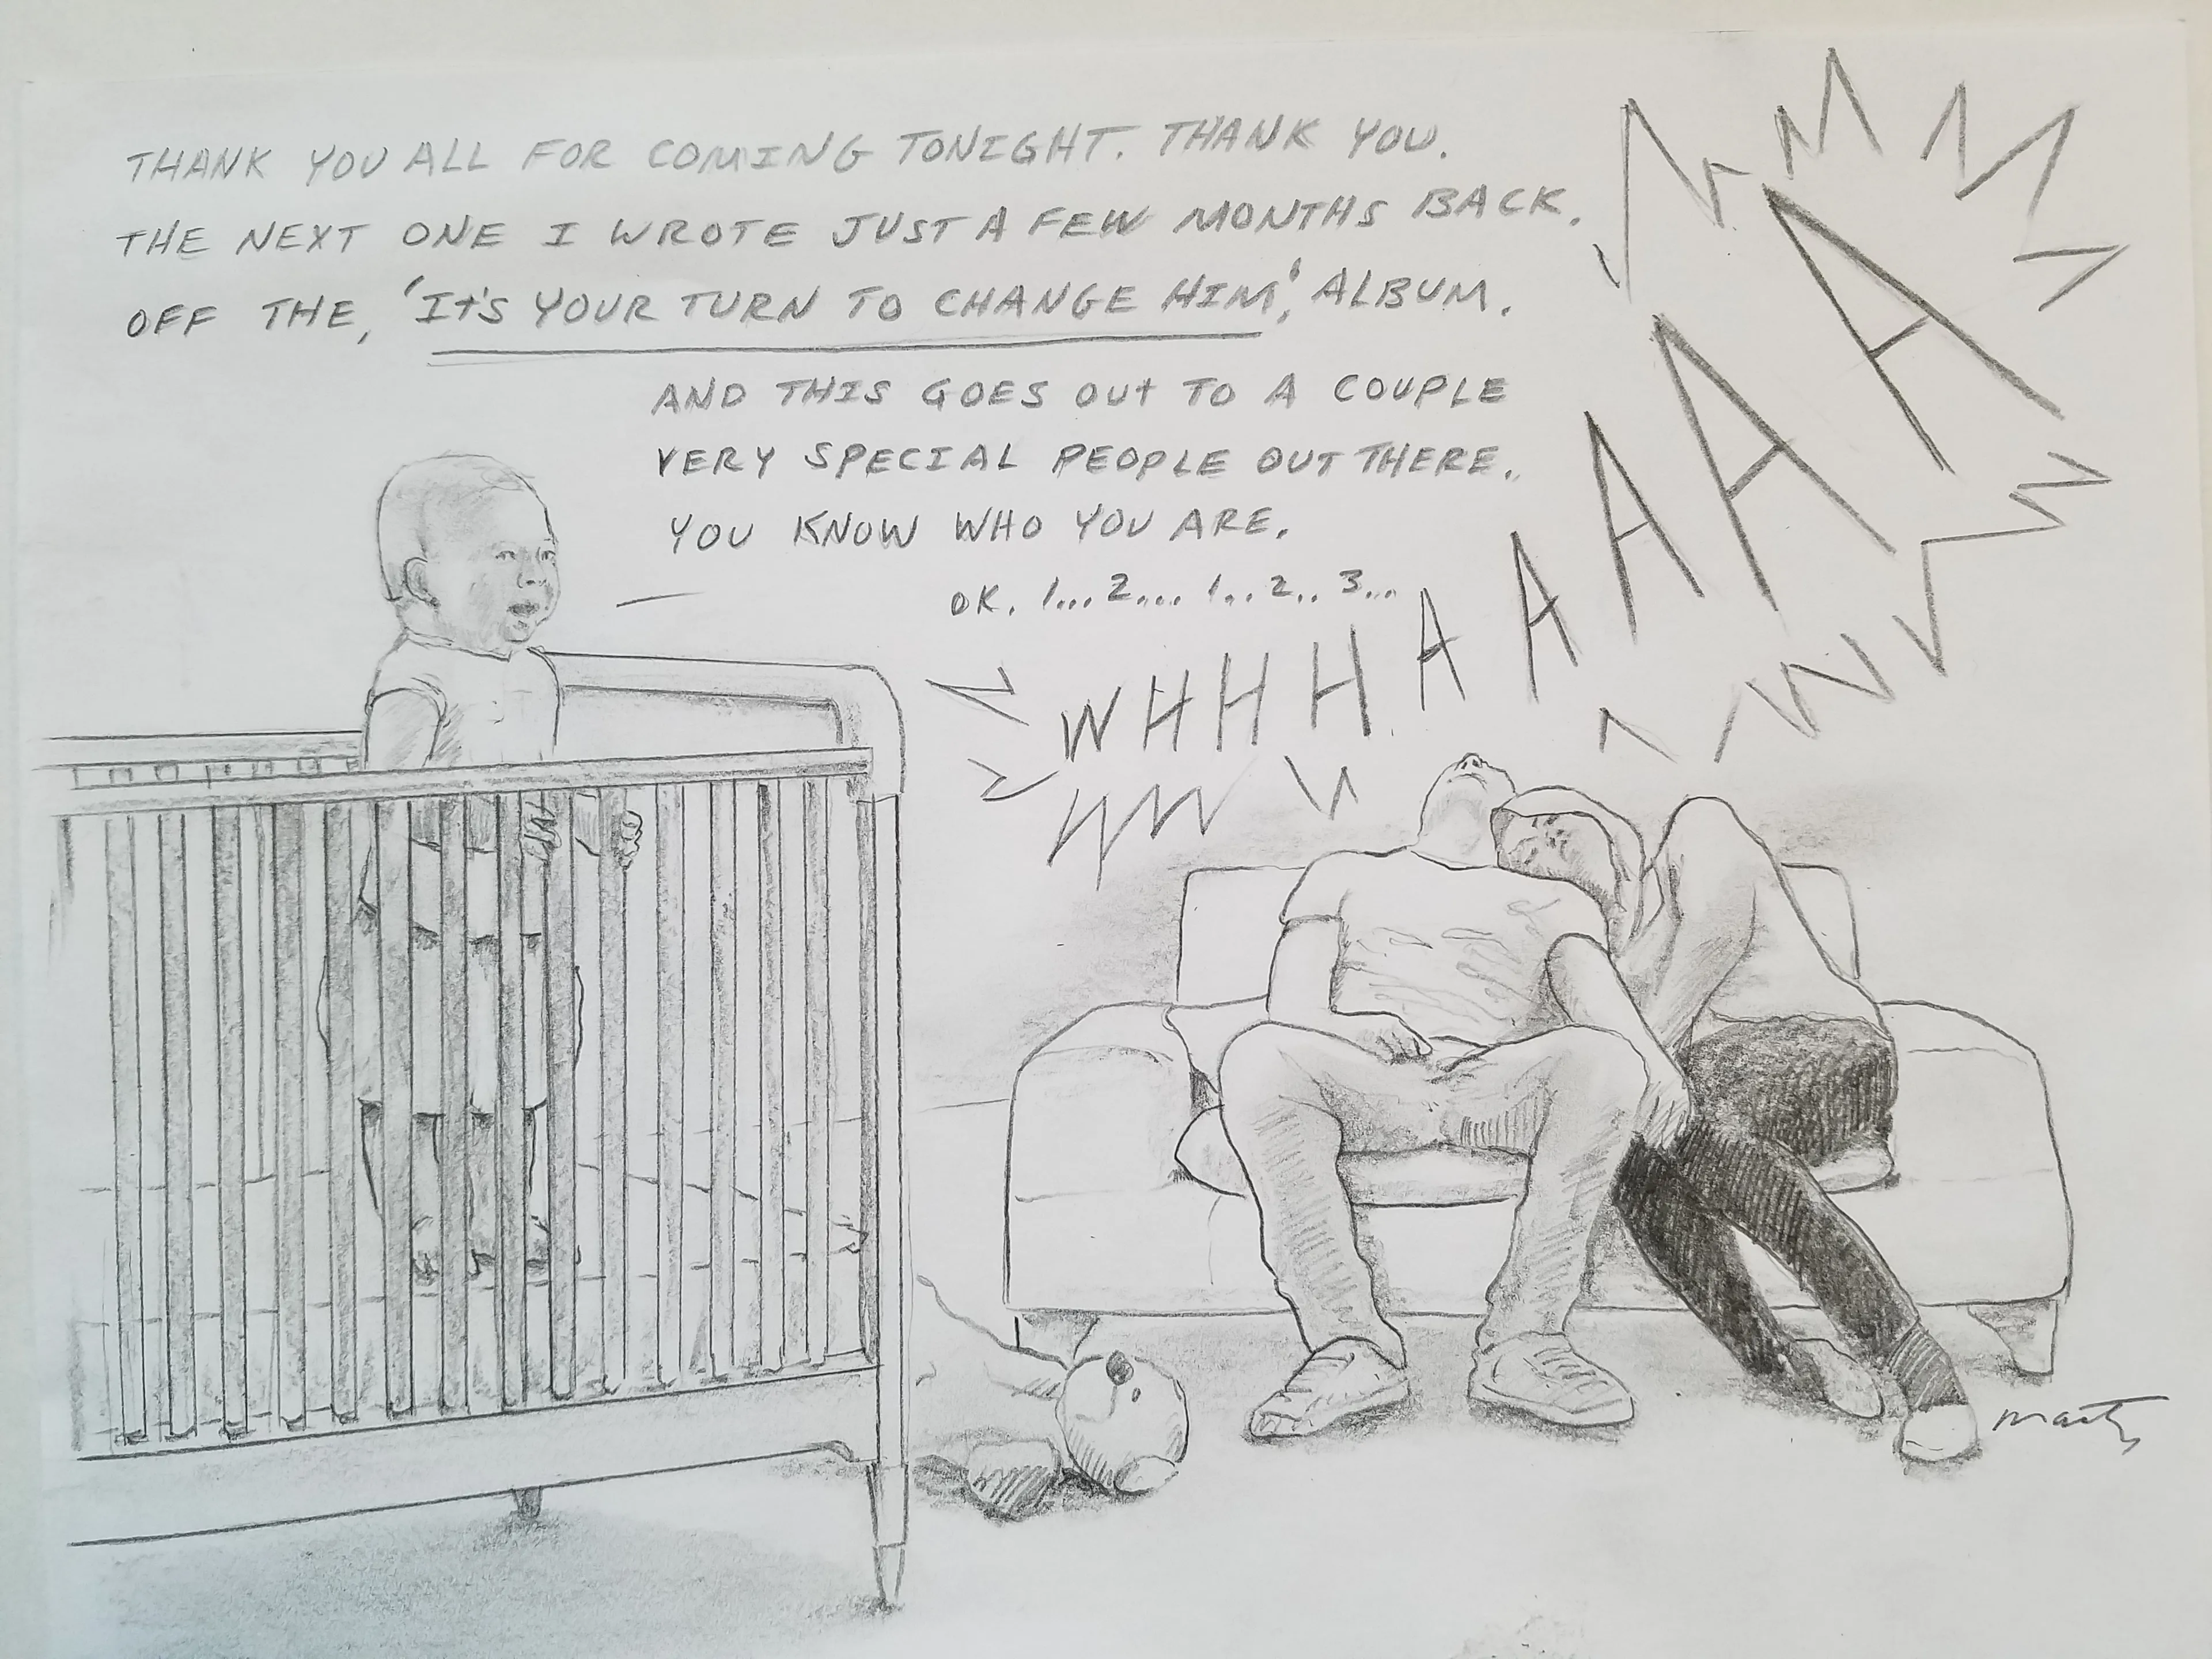 THANK YOU ALL FOR COMING TONIGHT. THANK YOU.
THE NEXT ONE I WROTE JUST A FEW MONTHS BACK.
OFF THE, 'It's YOUR TURN TO CHANGE HIM,' ALBUM.
AND THIS GOES OUt TO A COUPLE
VERY SPECIAL PEOPLE OUT THERE.
YOU KNOW WHO YOU ARE.
OK. 1... 2... 1.. 2.. 3...
WHHHAAAAAA
Marty